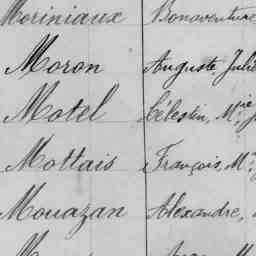 Moriniaux Bonaventure
Moron Auguste Julie
Motel Célestin, Mie J
Mottais François, M
Mouazan Alexandre,